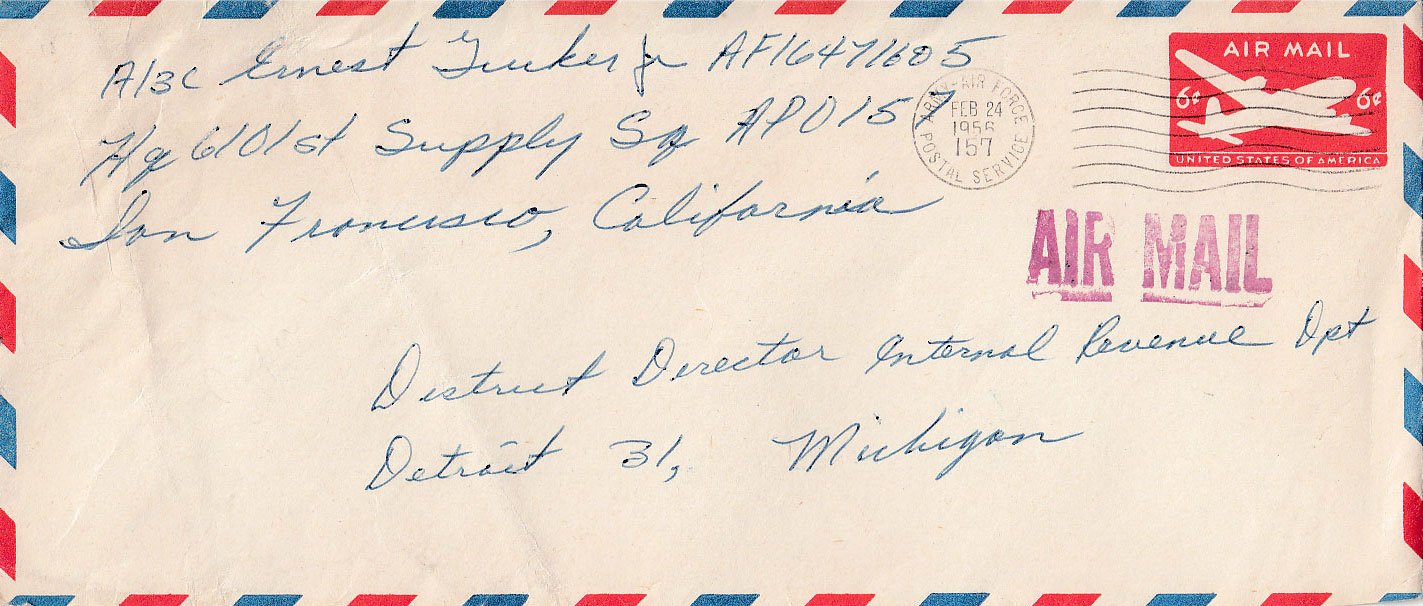 A/3C Ernest Tucker Jr AF16471605
Hq 6101st Supply Sq APO 157
San Francisco, California
ARMY-AIR FORCE
FEB 24
1956
157
POSTAL SERVICE
AIR MAIL
6¢ 6¢
UNITED STATES OF AMERICA
AIR MAIL
District Director Internal Revenue Dpt
Detroit 31, Michigan